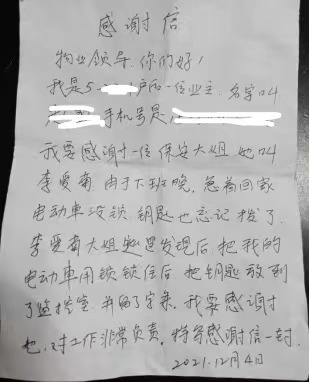 感谢信
物业领导.你们好!
我是5 户的一位业主.名字叫
手机号是
我要感谢一位保安大姐.她叫
李爱菊 由于下班晚,急着回家
电动车没锁 钥匙也忘记拨了.
李爱菊大姐 发现后把我的
电动車用锁锁住后 把钥匙放到
了监控室.并留了字条.我要感谢
她.对工作非常负责.特写感谢信一封.
2021.12月4日